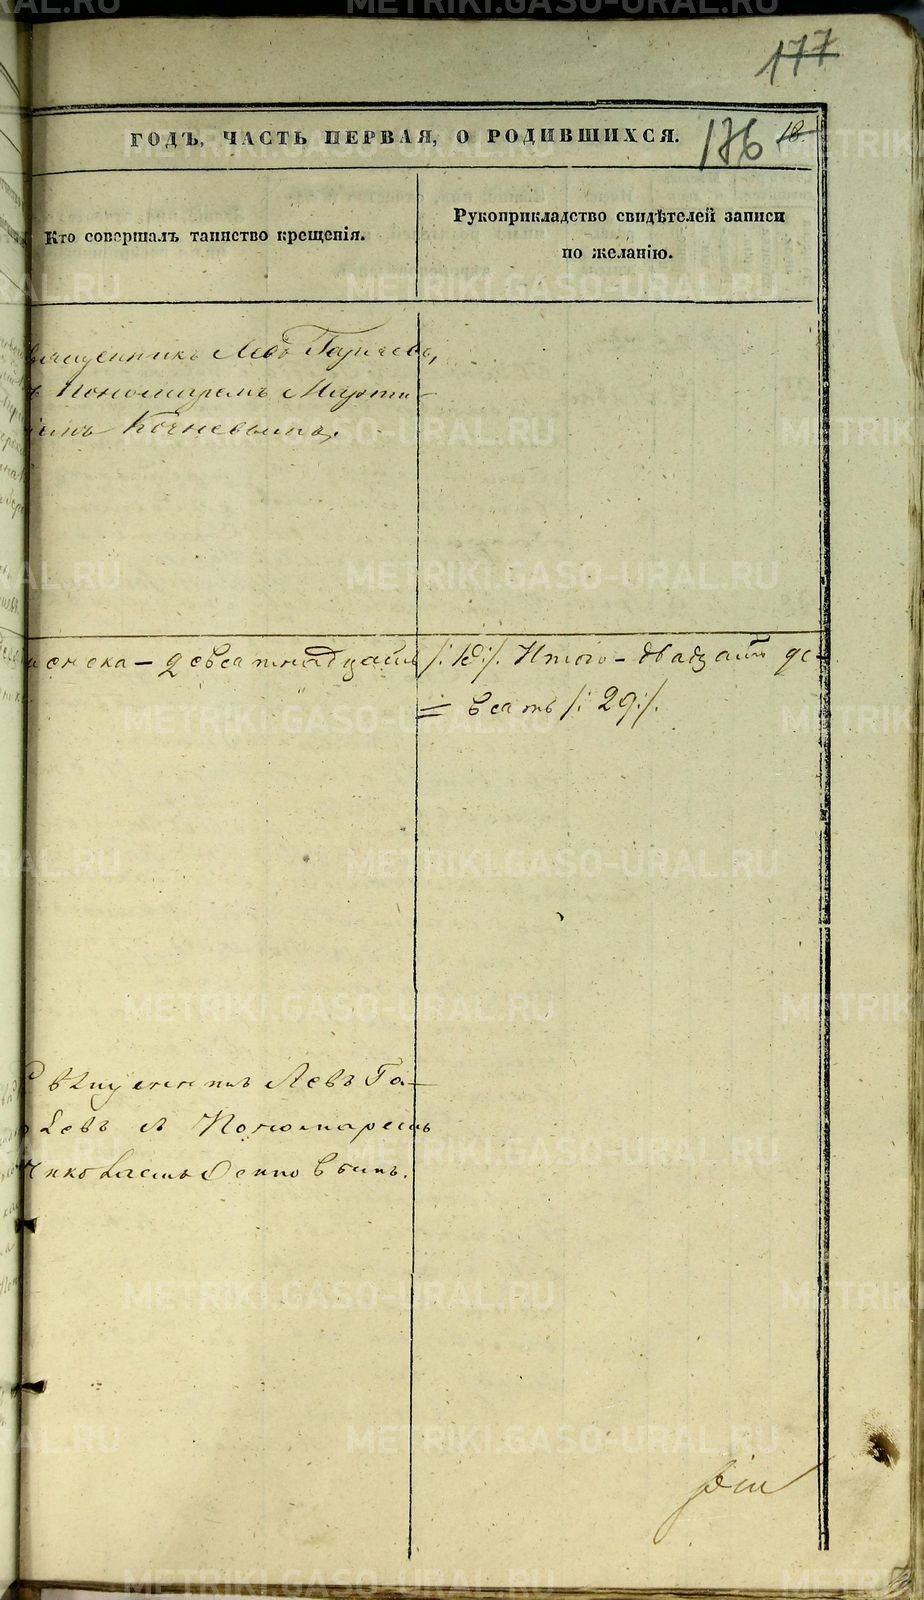 177
ГОДЪ, ЧАСТЬ ПЕРВАЯ, О РОДИВШИХСЯ.
176 18.
Кто совершалъ таинство крещенія.
Рукоприкладство свидѣтелей записи
по желанію.
Священникъ Левъ
съ Пономаремъ Марти-
Кочневымъ.
женска - девятнадцать /:19:/. Итого - двадцать де-
= вять /:29:/.
Священникъ Левъ Га-
съ Пономаремъ
Николаемъ
METRIKI.GASO-URAL.RU